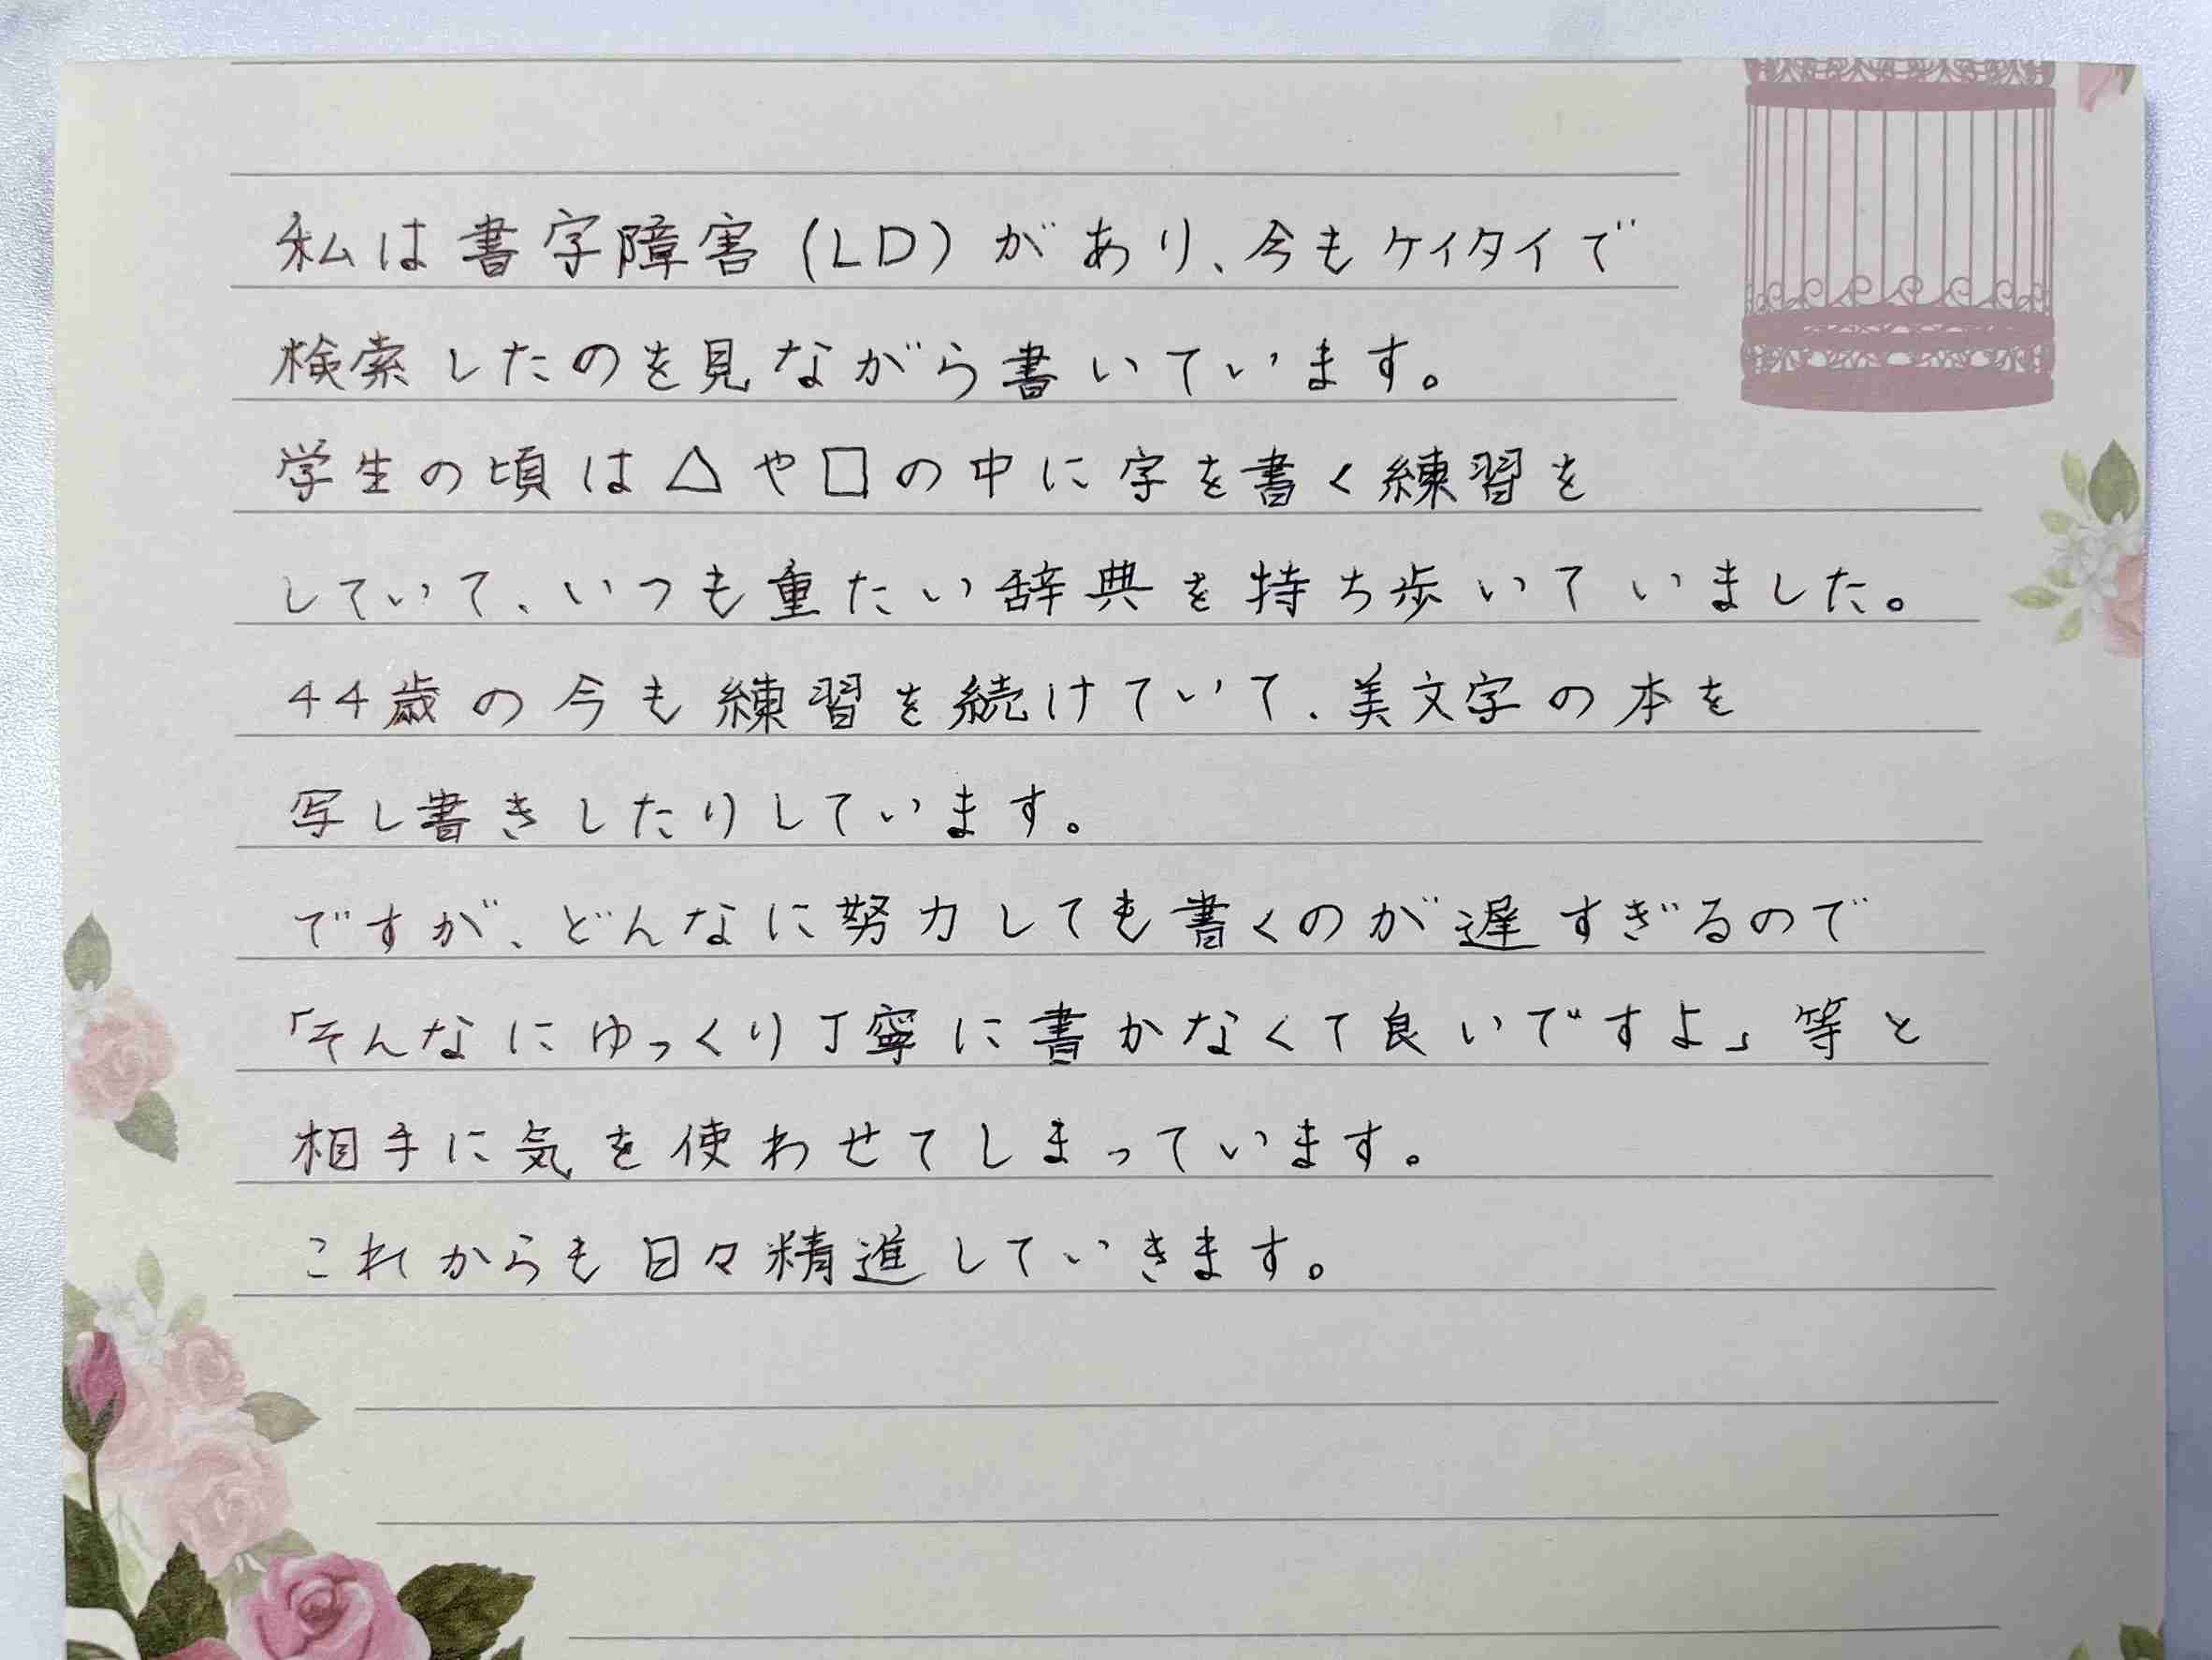 私は書字障害(LD)があり、今もケイタイで
検索したのを見ながら書いています。
学生の頃は△や□の中に字を書く練習を
していて、いつも重たい辞典を持ち歩いていました。
44歳の今も練習を続けていて、美文字の本を
写し書きしたりしています。
ですが、どんなに努力しても書くのが遅すぎるので
「そんなにゆっくり丁寧に書かなくて良いですよ」等と
相手に気を使わせてしまっています。
これからも日々精進していきます。